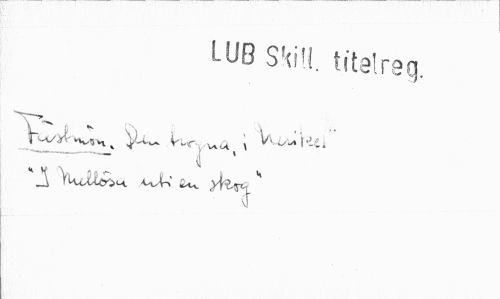 LUB Skill. titelreg.
Fästmön. Den trogna, i Nerikes"
"I Mellösa uti en skog"